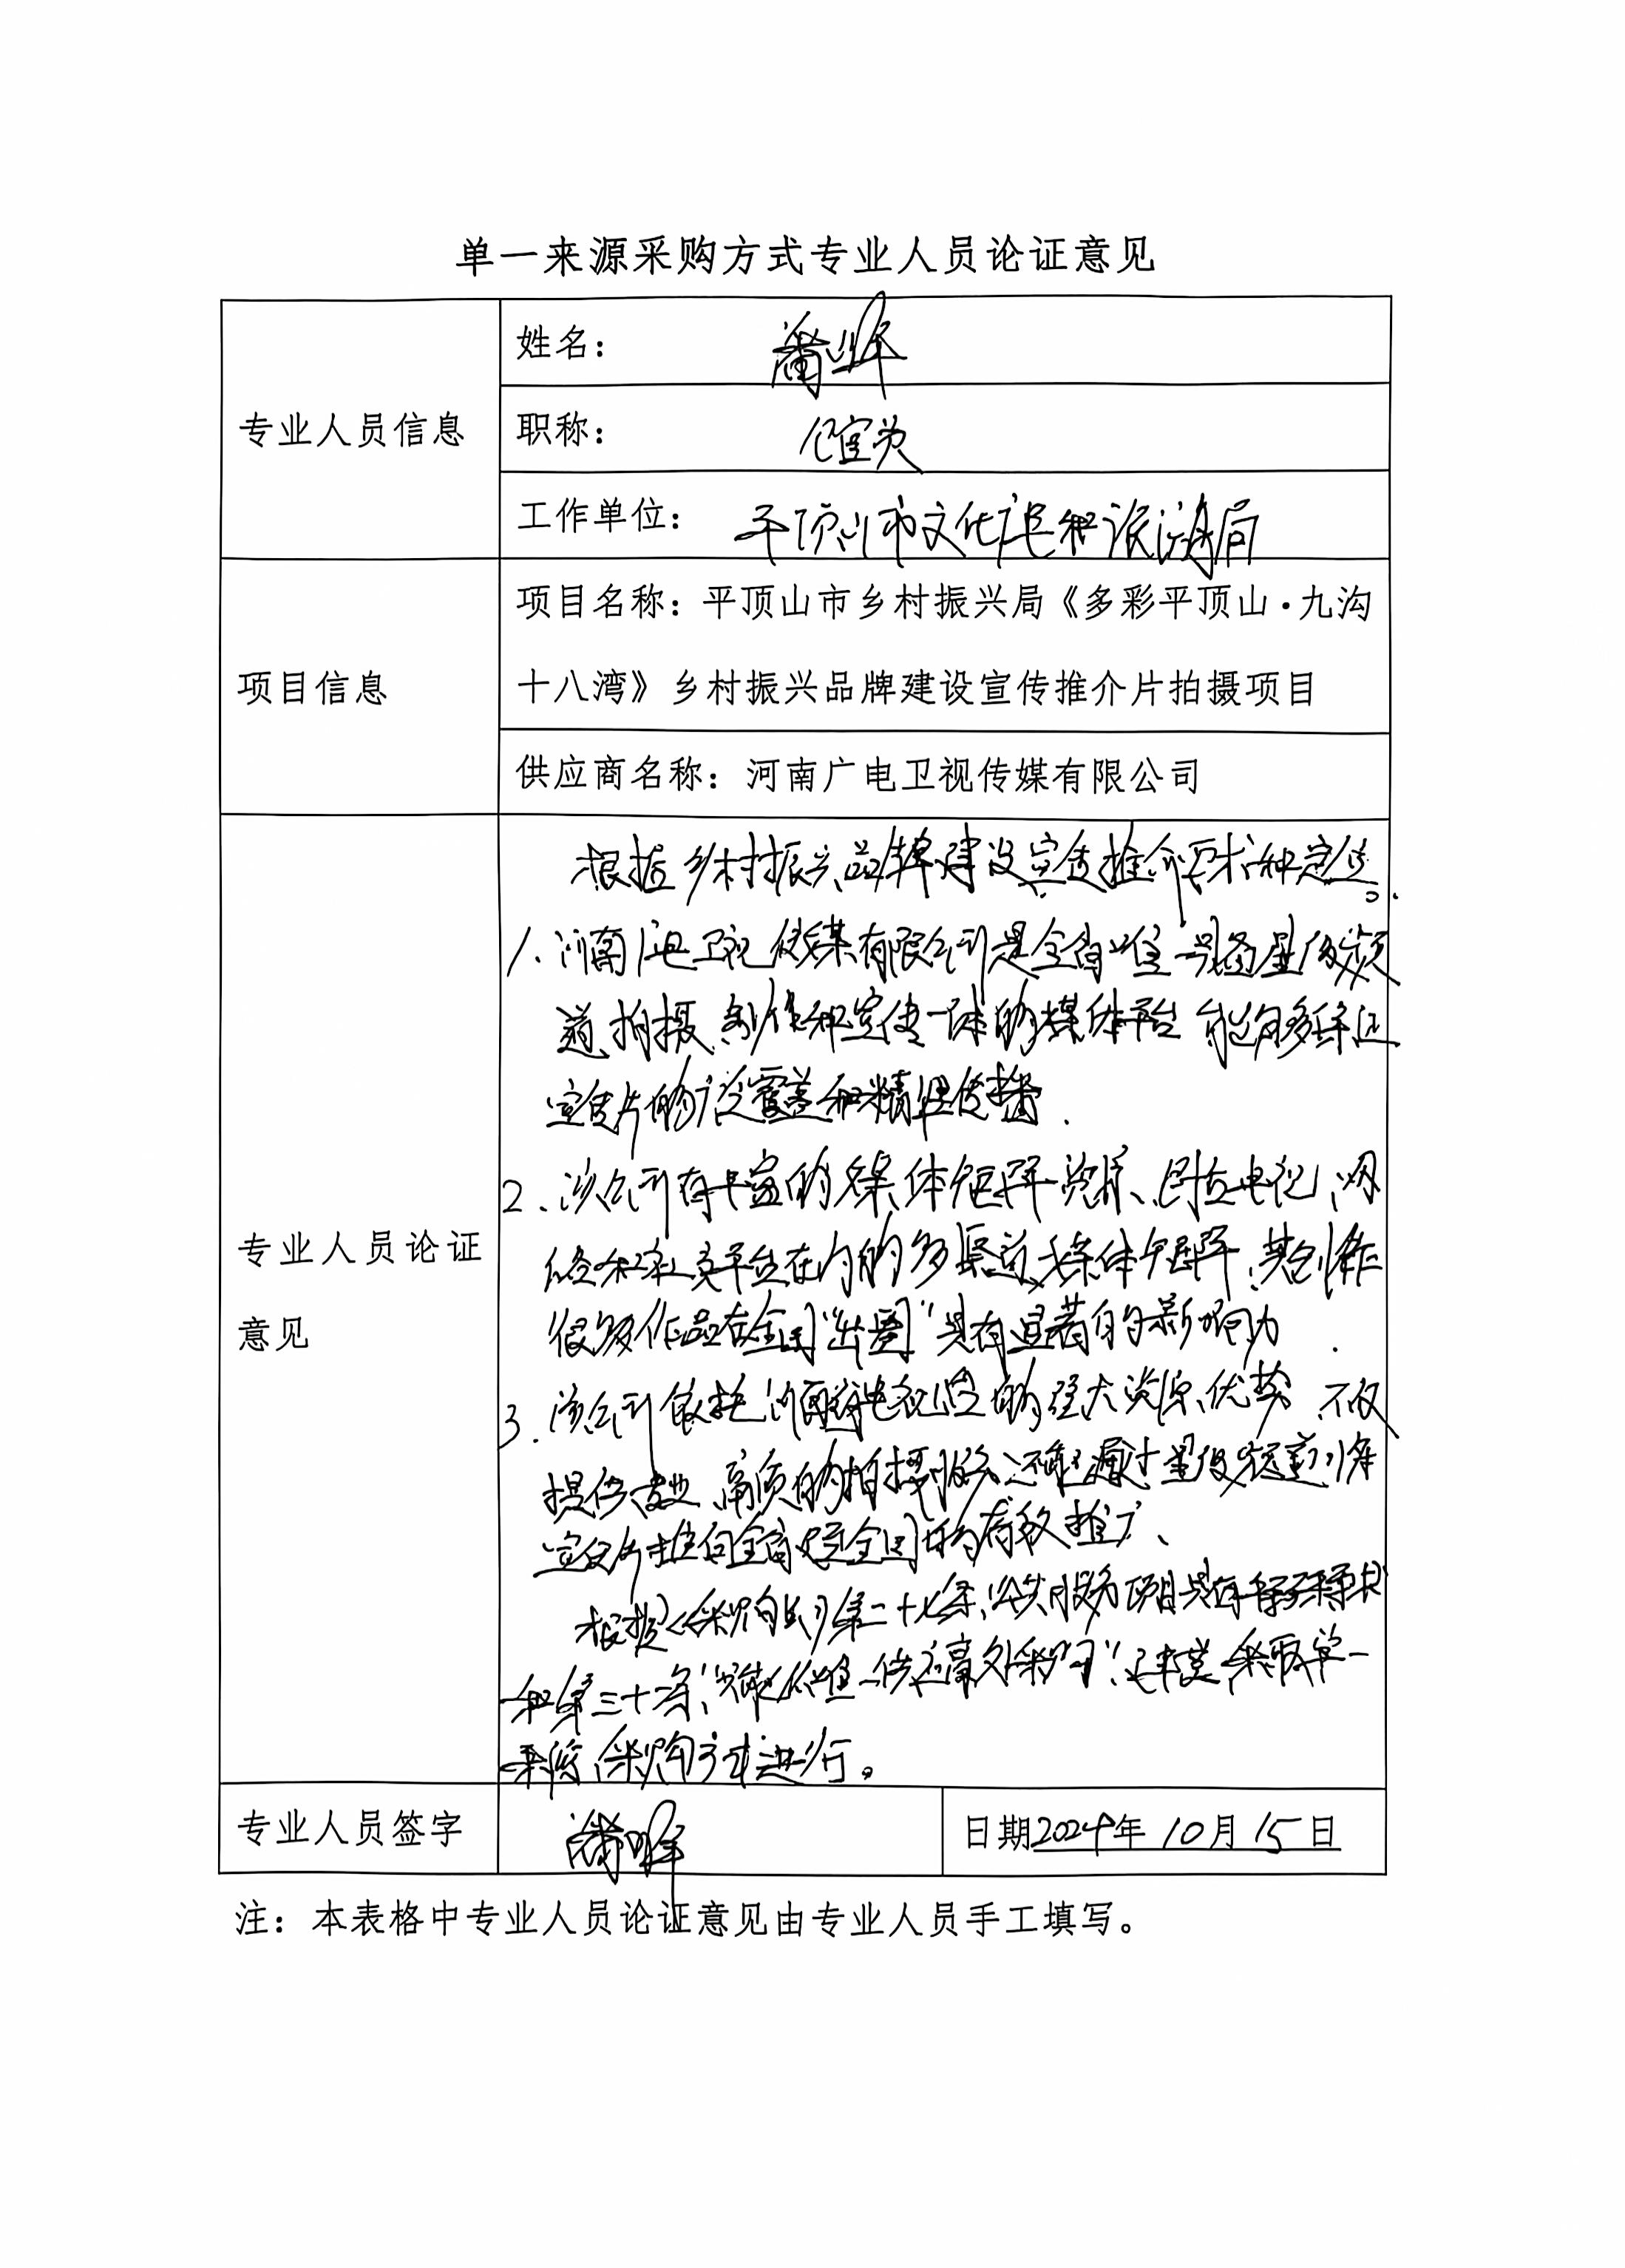 单一来源采购方式专业人员论证意见
专业人员信息
姓名：
职称：
工作单位： 平顶山市文化广电和旅游局
项目信息
项目名称：平顶山市乡村振兴局《多彩平顶山·九沟
十八湾》乡村振兴品牌建设宣传推介片拍摄项目
供应商名称：河南广电卫视传媒有限公司
专业人员论证
意见
根据乡村振兴品牌建设宣传推介要求和定位。
1.河南广电卫视传媒有限公司是全省唯一具备星级频
道、拍摄、制作和宣传一体的媒体平台 能够保证
宣传片的广泛覆盖和精准传播.
2.该公司有丰富的媒体矩阵资源、包括电视、网
络和社交平台在内的多渠道媒体矩阵,其创作
很多作品在全国“出圈”具有显著的影响力.
3.该公司依托河南广电视台的强大资源优势 不仅
提供专业、高质的拍摄服务、还能通过星级频道将
宣传片推向全省乃至全国的有效推广、
根据《采购法》第二十七条,公共服务项目具有特殊要求
和第三十一条,“只能从唯一供应商处采购”,建议采取单一
来源采购方式进行。
专业人员签字
日期2024年10月15日
注：本表格中专业人员论证意见由专业人员手工填写。